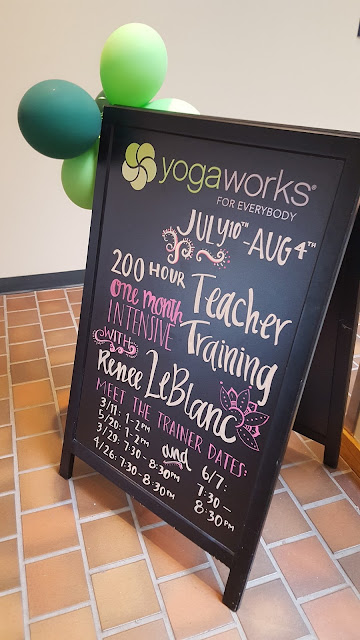 yogaworks®
FOR EVERYBODY
JULY 10TH - AUG 4TH
200 HOUR Teacher
one month
INTENSIVE Training
WITH
Renee LeBlanc
MEET THE TRAINER DATES:
3/11: 1-2PM
5/20: 1-2PM and 6/7:
3/29: 7:30-8:30PM 7:30-
4/26: 7:30-8:30PM 8:30PM